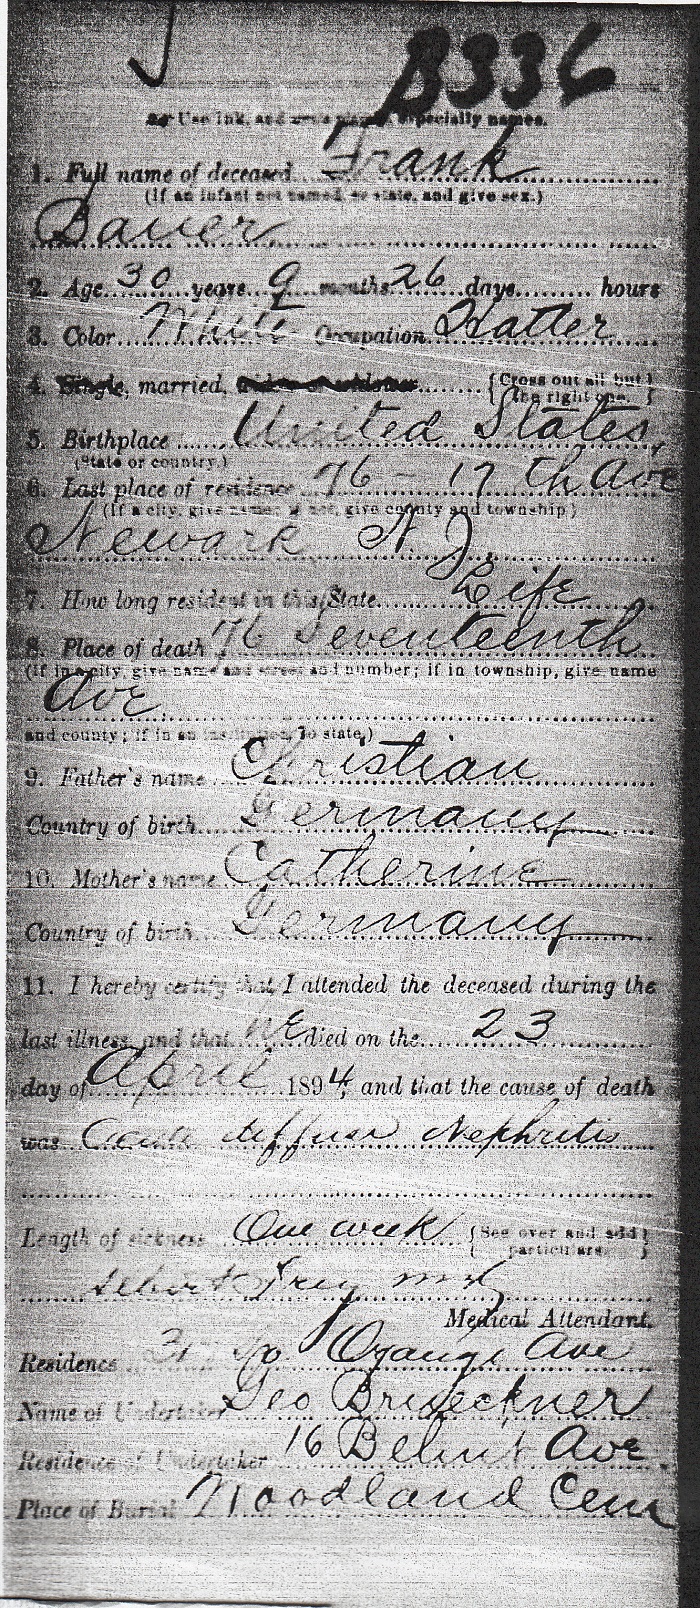 B336
Use ink, and write plainly, especially names.
1. Full name of deceased Frank
(If an infant not named, so state, and give sex.)
Bauer
2. Age 30 years 9 months 26 days hours
3. Color White Occupation Hatter
4. Single, married, { Cross out all but the right one. }
5. Birthplace United States,
(State or country.)
6. Last place of residence 76 - 17 th Ave
(If a city, give name; if not, give county and township.)
Newark N. J.
7. How long resident in this State Life
8. Place of death 76 Seventeenth
(If in a city, give name and street and number; if in township, give name
Ave
and county; if in an institution, so state.)
9. Father's name Christian
Country of birth Germany
10. Mother's name Catherine
Country of birth Germany
11. I hereby certify that I attended the deceased during the
last illness, and that he died on the 23
day of April 1894, and that the cause of death
was Acute diffuse Nephritis
Length of sickness One week { See over and add particulars. }
Frey MD
Medical Attendant.
Residence Orange Ave
Name of Undertaker Geo Brueckner
Residence of Undertaker 16 Belmont Ave
Place of Burial Woodland Cem